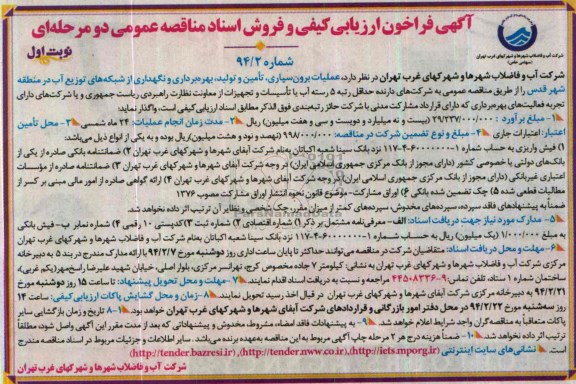 آگهی فراخون ارزیابی کیفی و فروش اسناد مناقصه عمومی دو مرحله‌ای
شماره ۹۴/۲
نوبت اول
شرکت آب و فاضلاب شهرها و شهرکهای غرب تهران
(سهامی خاص)
شرکت آب و فاضلاب شهرها و شهرکهای غرب تهران در نظر دارد، عملیات برون‌سپاری، تأمین و تولید، بهره‌برداری و نگهداری از شبکه‌های توزیع آب در منطقه
شهر قدس را از طریق مناقصه عمومی به شرکت‌های دارنده حداقل رتبه ۵ رسته آب یا تأسیسات و تجهیزات از معاونت نظارت راهبردی ریاست جمهوری و یا شرکت‌های دارای
تجربه فعالیت‌های بهره‌برداری که دارای قرارداد مشارکت مدنی با شرکت حائز رتبه‌بندی فوق الذکر مطابق اسناد ارزیابی کیفی است، واگذار نماید:
۱– مبلغ برآورد : ۲۹/۲۳۷/۰۰۰/۰۰۰ (بیست و نه میلیارد و دویست و سی و هفت میلیون) ریال ۲– مدت زمان انجام عملیات: ۲۴ ماه شمسی ۳– محل تأمین
اعتبار: اعتبارات جاری ۴– مبلغ و نوع تضمین شرکت در مناقصه: ۹۹۸/۰۰۰/۰۰۰ (نهصد و نود و هشت میلیون) ریال بوده و به یکی از انواع ذیل می‌باشد:
۱) فیش واریزی به حساب شماره ۱–۱۱۷۰۴۰۶۰۰۰۰۰۰ نزد بانک سینا شعبه اکباتان به‌نام شرکت آبفای شهرها و شهرکهای غرب تهران ۲) ضمانتنامه بانکی صادره از یکی از
بانک‌های دولتی یا خصوصی کشور (دارای مجوز از بانک مرکزی جمهوری اسلامی ایران) در وجه شرکت آبفای شهرها و شهرکهای غرب تهران ۳) ضمانتنامه صادره از مؤسسات
اعتباری غیربانکی (دارای مجوز از بانک مرکزی جمهوری اسلامی ایران) در وجه شرکت آبفای شهرها و شهرکهای غرب تهران ۴) ارائه گواهی صادره از امور مالی مبنی بر کسر از
مطالبات قطعی شده ۵) چک تضمین شده بانکی ۶) اوراق مشارکت- موضوع قانون نحوه انتشار اوراق مشارکت مصوب ۱۳۷۶
ضمناً به پیشنهادهای فاقد سپرده، سپرده‌های مخدوش، سپرده‌های کمتر از میزان مقرر، چک شخصی و نظایر آن ترتیب اثر داده نخواهد شد.
۵– مدارک مورد نیاز جهت دریافت اسناد: الف- معرفی‌نامه مشتمل بر ذکر ۱) شماره اقتصادی ۲) شماره ثبت ۳) کدپستی ۱۰ رقمی ۴) شماره نمابر ب- فیش بانکی
به مبلغ ۱/۰۰۰/۰۰۰ (یک میلیون) ریال به حساب شماره ۱–۱۱۷۰۴۰۶۰۰۰۰۰۰ نزد بانک سینا شعبه اکباتان به‌نام شرکت آب و فاضلاب شهرها و شهرکهای غرب تهران
۶– مهلت و محل دریافت اسناد: متقاضیان شرکت در مناقصه می‌توانند حداکثر تا پایان ساعت اداری روز دوشنبه مورخ ۹۴/۲/۷ با ارائه مدارک مندرج در بند ۵ به دبیرخانه
مرکزی شرکت آب و فاضلاب شهرها و شهرکهای غرب تهران به نشانی: کیلومتر ۷ جاده مخصوص کرج، تهرانسر مرکزی، بلوار اصلی، خیابان شهید علیرضا راسخ‌مهر(یکم غربی)،
ساختمان شماره ۱ ستاد، تلفن تماس: ۹–۴۴۵۰۸۳۳۶ مراجعه و نسبت به دریافت اسناد اقدام نمایند. ۷– مهلت و محل تحویل پیشنهادها: تا ساعت ۱۵ روز دوشنبه مورخ
۹۴/۲/۲۱ به دبیرخانه مرکزی شرکت آب و فاضلاب شهرها و شهرکهای غرب تهران در قبال اخذ رسید تحویل نمایند. ۸– زمان و محل گشایش پاکات ارزیابی کیفی: ساعت ۱۴
روز سه‌شنبه مورخ ۹۴/۲/۲۲ در محل دفتر امور بازرگانی و قراردادهای شرکت آبفای شهرها و شهرکهای غرب تهران خواهد بود. ۸–۱ تاریخ و زمان بازگشایی سایر
پاکات متعاقباً به مناقصه‌گران واجد شرایط اعلام خواهد شد. ۹– به پیشنهادات فاقد امضاء، مشروط، مخدوش و پیشنهاداتی که بعد از مدت مقرر این آگهی واصل شود، مطلقاً
ترتیب اثر داده نخواهد شد. ۱۰– ضمناً هزینه درج هر ۲ مرحله چاپ آگهی مربوط به این مناقصه به‌عهده برنده می‌باشد. سایر اطلاعات و جزئیات مربوط در اسناد مناقصه مندرج
است. نشانی‌های سایت اینترنتی (http://iets.mporg.ir)، (http://tender.nww.co.ir) و (http://tender.bazresi.ir)
شرکت آب و فاضلاب شهرها و شهرکهای غرب تهران